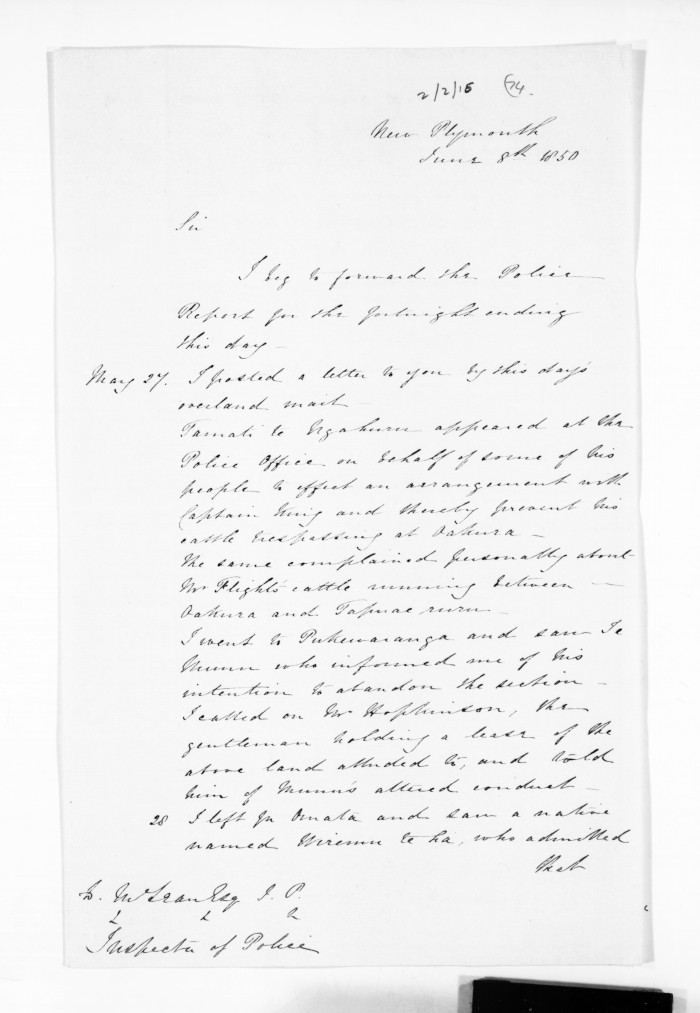 2/2/15 74.
New Plymouth
June 8th 1850
Sir
I beg to forward the Police
Report for the fortnight ending
this day -
May 27. I posted a letter to you by this day's
overland mail -
Tamati te Ngahuru appeared at the
Police Office on behalf of some of his
people to effect an arrangement with
Captain King and thereby prevent his
cattle trespassing at Oakura -
The same complained personally about
Mr Flight's cattle running between -
Oakura and Tapuae ruru -
I went to Pukewaranga and saw Te
Munu who informed me of his
intention to abandon the section -
I called on Mr Hophinson, the
gentleman holding a lease of the
above land alluded to, and told
him of Munu's altered conduct -
28 I left for Omata and saw a native
named Wiremu te ha, who admitted
that
D. McLean Esq J. P.
Inspector of Police